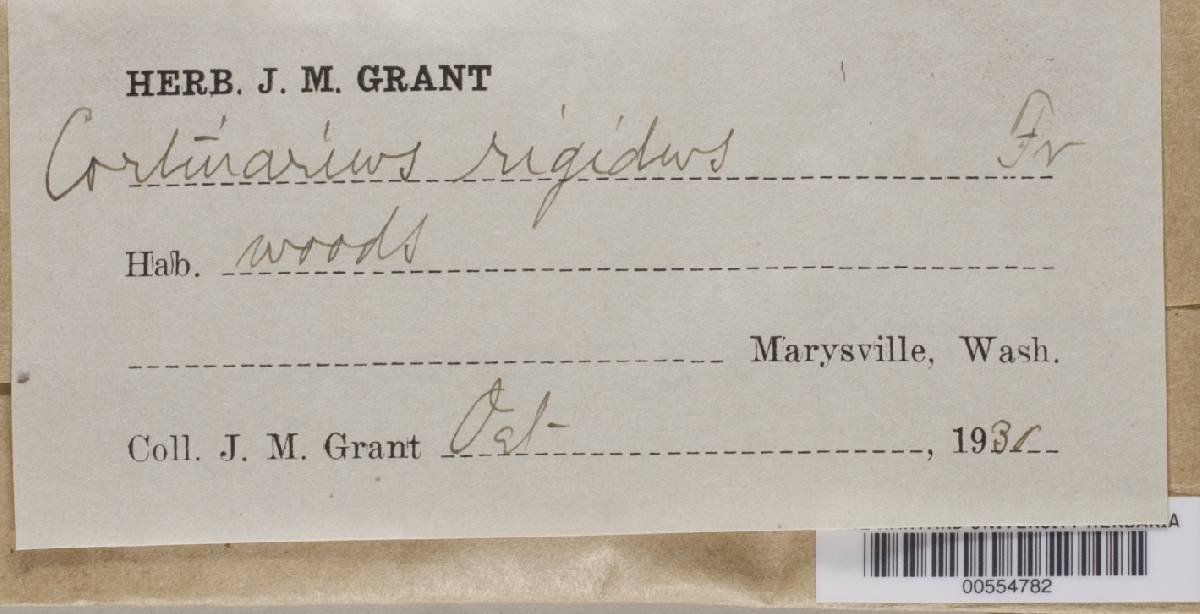 HERB. J. M. GRANT
Cortinarius rigidus Fr
Hab. woods
Marysville, Wash.
Coll. J. M. Grant Oct , 193
HARVARD UNIVERSITY HERBARIA
00554782